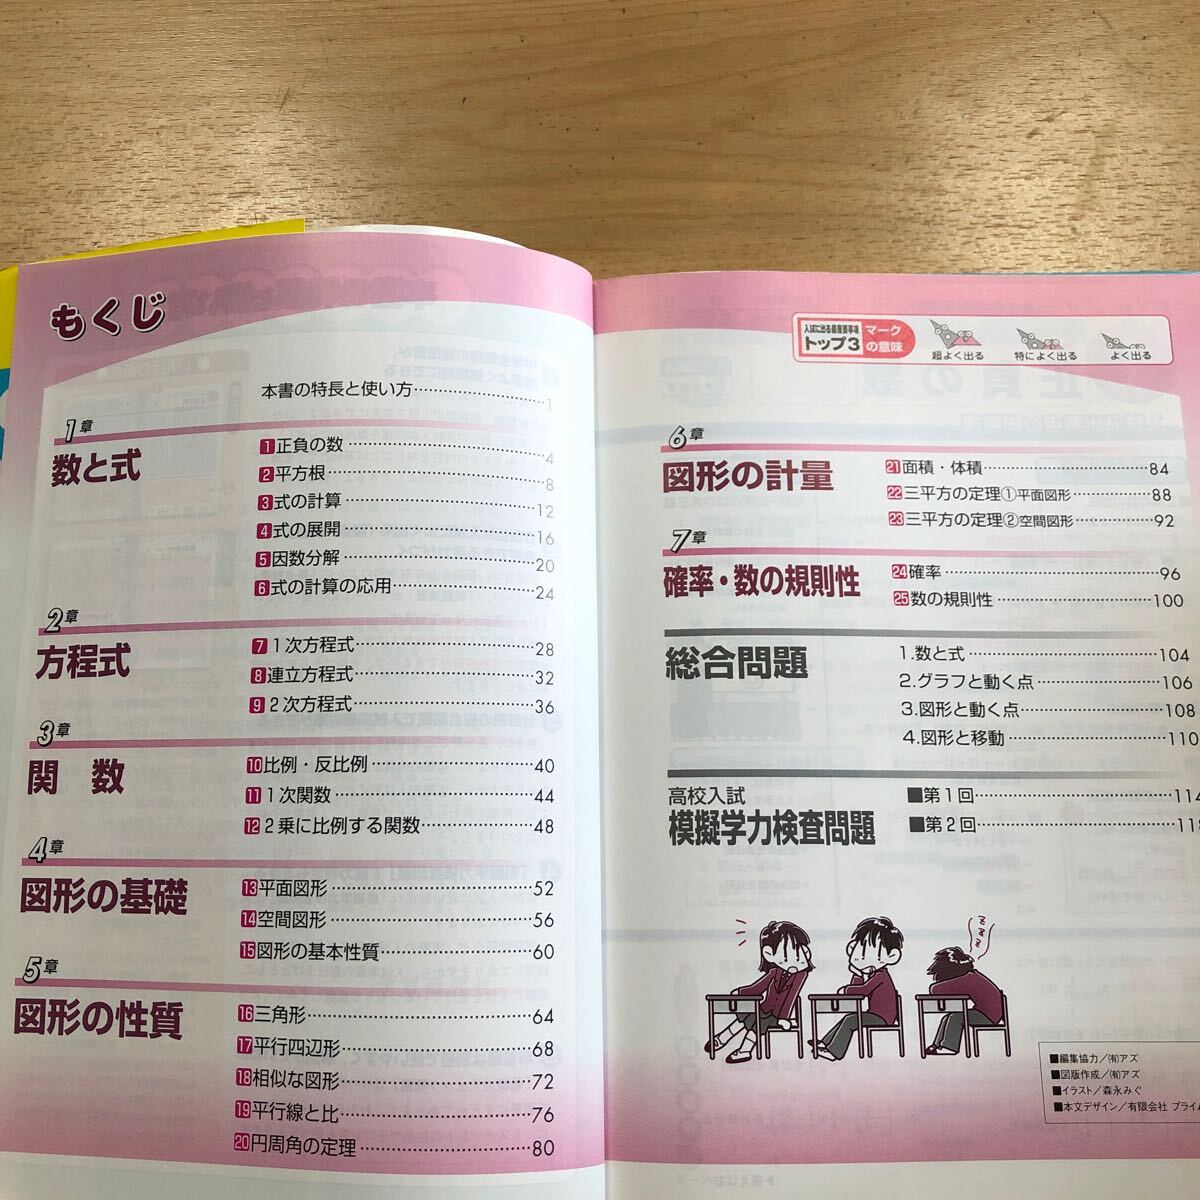 もくじ
本書の特長と使い方 1
1章
数と式
1 正負の数 4
2 平方根 8
3 式の計算 12
4 式の展開 16
5 因数分解 20
6 式の計算の応用 24
2章
方程式
7 1次方程式 28
8 連立方程式 32
9 2次方程式 36
3章
関数
10 比例・反比例 40
11 1次関数 44
12 2乗に比例する関数 48
4章
図形の基礎
13 平面図形 52
14 空間図形 56
15 図形の基本性質 60
5章
図形の性質
16 三角形 64
17 平行四辺形 68
18 相似な図形 72
19 平行線と比 76
20 円周角の定理 80
入試に出る最重要事項
トップ3
マークの意味
超よく出る
特によく出る
よく出る
6章
図形の計量
21 面積・体積 84
22 三平方の定理①平面図形 88
23 三平方の定理②空間図形 92
7章
確率・数の規則性
24 確率 96
25 数の規則性 100
総合問題
1.数と式 104
2.グラフと動く点 106
3.図形と動く点 108
4.図形と移動 110
高校入試
模擬学力検査問題
■第1回 114
■第2回 118
■編集協力/㈲アズ
■図版作成/㈲アズ
■イラスト/森永みぐ
■本文デザイン/有限会社 プライム